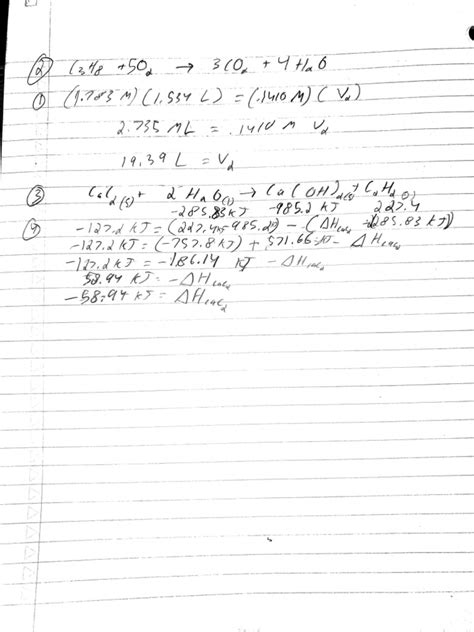 ② C3H8 + 5O2 → 3CO2 + 4H2O
① (1.783 M)(1.534 L) = (.1410 M)(V2)
2.735 ML = .1410 M V2
19.39 L = V2
③ CaC2(s) + 2 H2O(l) → Ca(OH)2(s) + C2H2(g)
-285.83 KJ -985.2 KJ 227.4
④ -127.2 KJ = (227.4 + -985.2) - (ΔHCaC2 + 2(-285.83 KJ))
-127.2 KJ = (-757.8 KJ) + 571.66 KJ - ΔHCaC2
-127.2 KJ = -186.14 KJ - ΔHCaC2
58.94 KJ = -ΔHCaC2
-58.94 KJ = ΔHCaC2